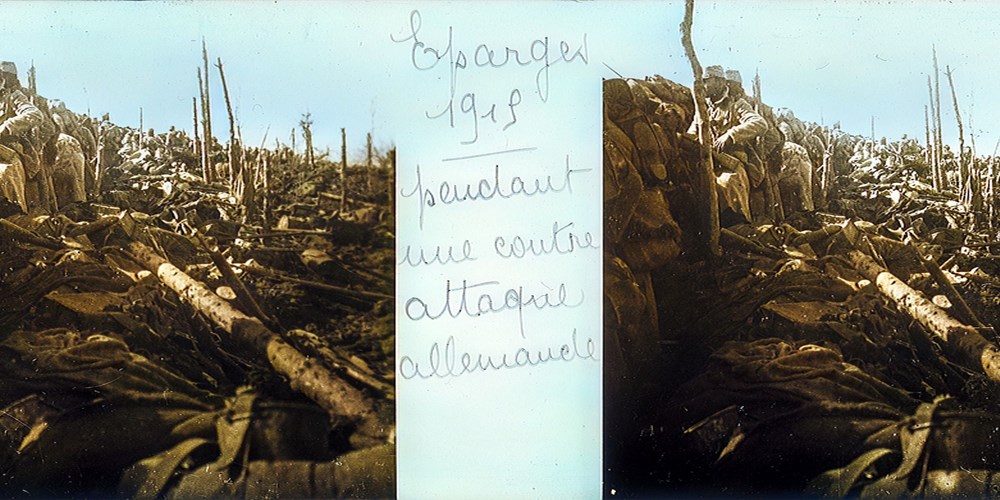 Eparges
1915
pendant
une contre
attaque
allemande